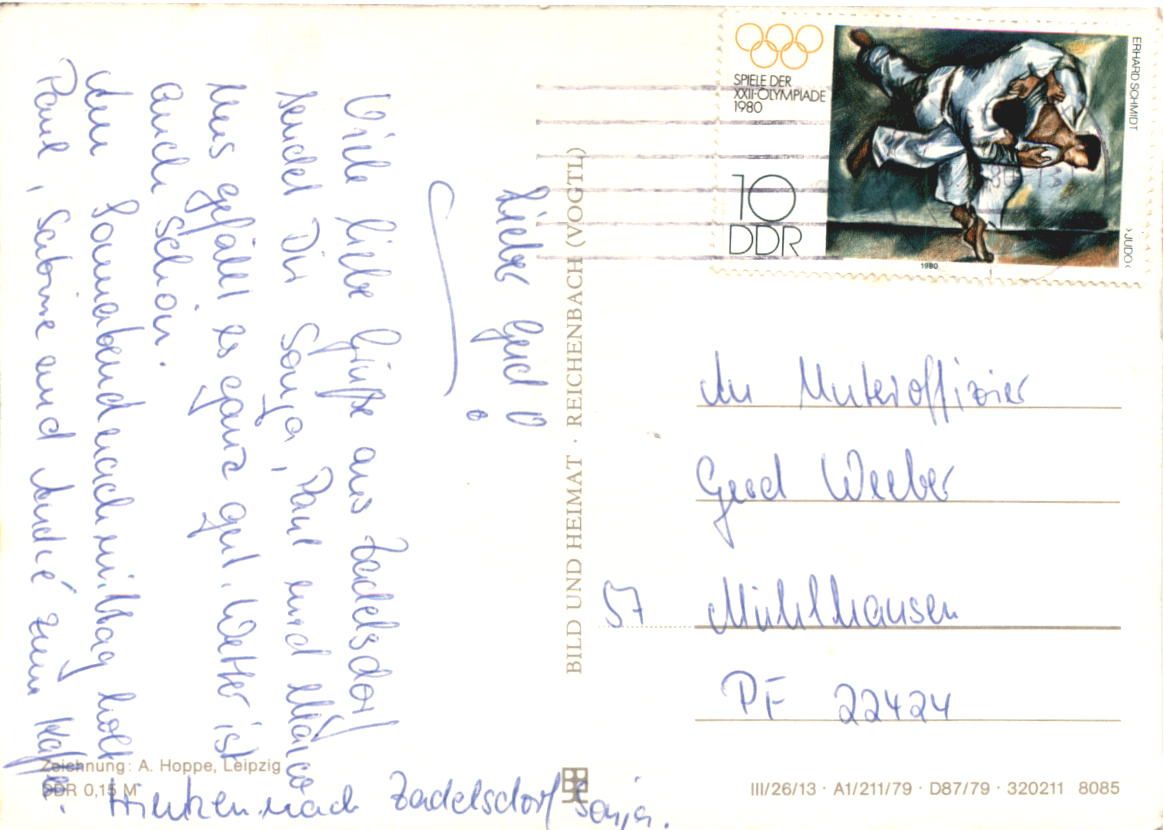 Lieber Gerd!
Viele liebe Grüße aus Zadelsdorf
sendet Dir Sonja, Paul und Marco
Uns gefällt es ganz gut. Wetter ist
auch schön.
Am Sonnabendnachmittag holt
Paul, Sabine und André zum Kaffee
trinken nach Zadelsdorf Sonja.
SPIELE DER
XXII. OLYMPIADE
1980
10
DDR
ERHARD SCHMIDT
›JUDO‹
1980
BILD UND HEIMAT · REICHENBACH (VOGTL)
An Unteroffizier
Gerd Weeber
57 Mühlhausen
PF 22424
Zeichnung: A. Hoppe, Leipzig
DDR 0,15 M
III/26/13 · A1/211/79 · D87/79 · 320211 8085